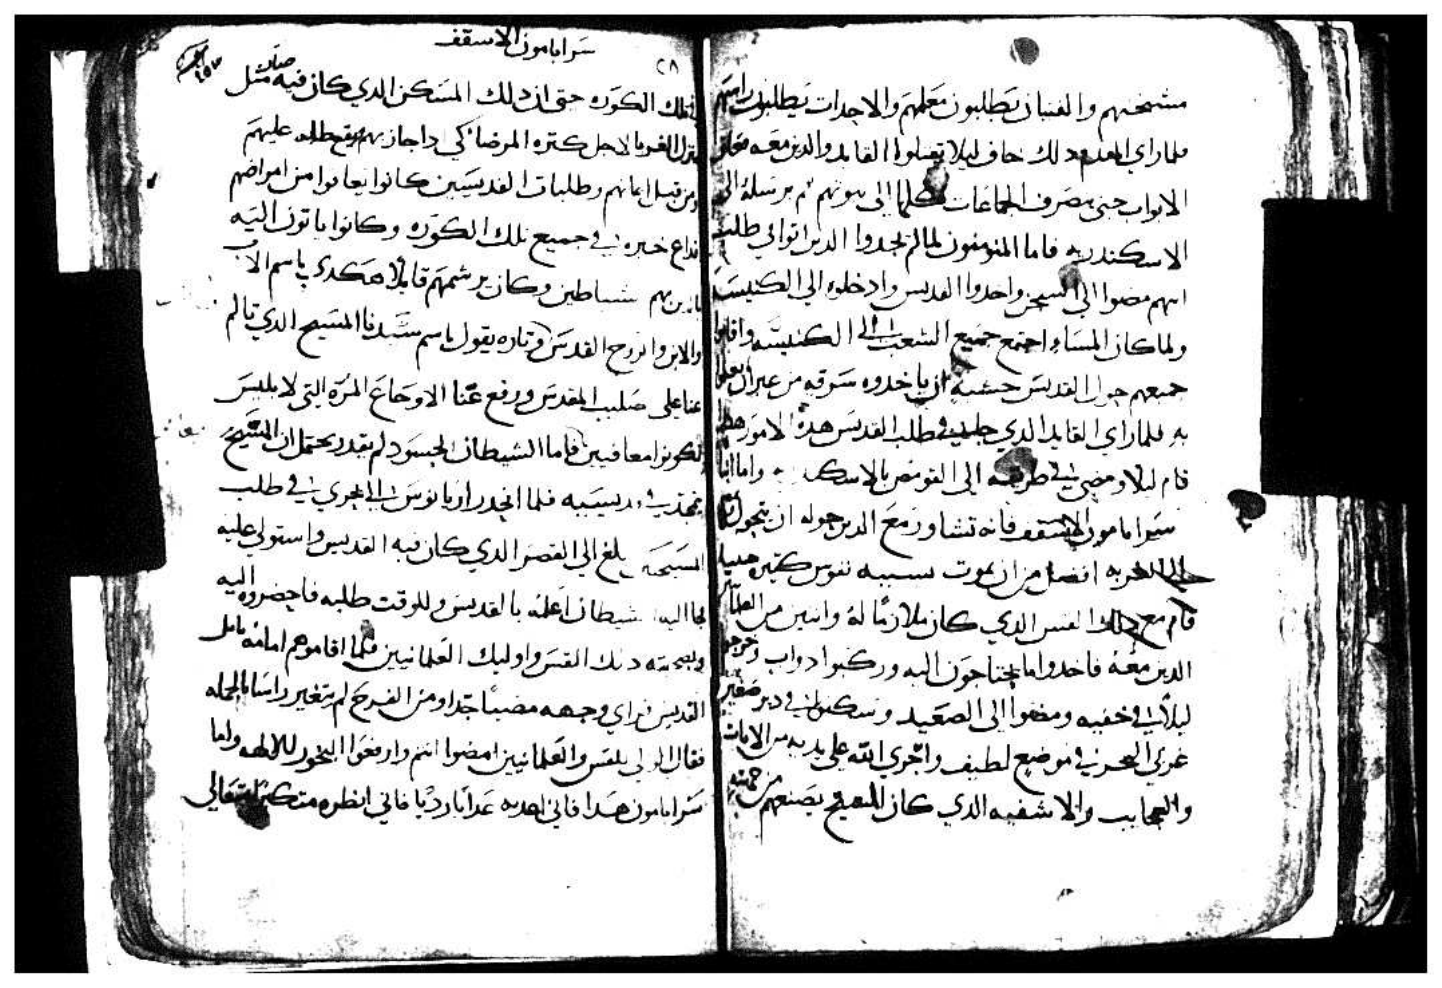 مشيختهم والفتيان يطلبون معلمهم والاحداث يطلبون راسهم
فلما راي القايد ذلك خاف ليلا يقتلوا القايد والذين معه فغلق
الابواب حتى يصرف الجماعات كلها الى بيوتهم ثم يرسله الى
الاسكندريه فاما المومنون لما لم يجدوا الذين اتوا في طلب
انهم مضوا الي السجن واخدوا القديس وادخلوه الي الكنيسه
ولما كان المساء اجتمع جميع الشعب الى الكنيسه واقاموا
جميعهم حول القديس خشية ان ياخدوه سرقه من غير ان يعلموا
به فلما راي القايد الذي في طلب القديس هده الامور هكدا
قام ليلا ومضى في طريقه الى القومص بالاسكندريه واما انبا
سرابامون الاسقف فانه تشاور مع الدين حوله ان يتحول
افضل من ان يموت بسببه نفوس كتيره
قام مع القس الدي كان ملازما له واتنين من العلمانيين
الدين معه فاخدوا ما يحتاجون اليه وركبوا دواب وخرجوا
ليلا في خفيه ومضوا الى الصعيد وسكنوا في دير صغير
غربي البحر في موضع لطيف واجري الله على يديه من الايات
والعجايب والاشفيه الدي كان المسيح يصنعهم من جهته
٢٨
سرابامون الاسقف
تلك الكوره حتى ان دلك المسكن الدي كان فيه مثل
منزل الغربا لاجل كتره المرضا لكي ادا جاز بهم يقع ظله عليهم
ومن قبل ايمانهم وطلبات القديسين كانوا يعافوا من امراضهم
فداع خبره في جميع تلك الكوره وكانوا ياتون اليه
بالدين بهم شياطين وكان يرشمهم قايلا هكدى باسم الاب
والابن والروح القدس وتاره يقول باسم سيدنا المسيح الدي تالم
عنا على صليب المقدس ورفع عنا الاوجاع المره التي لابليس
لكونوا معافيين فاما الشيطان الحسود لم يقدر يحتمل ان المسيح
يتمجد في قديسيه فلما انحدر اريانوس الى بحري في طلب
المسيحيه بلغ الي القصر الدي كان فيه القديس واستولي عليه
لجا اليه شيطان اعلمه بالقديس وللوقت طلبه فاحضروه اليه
وبصحبته دلك القس واوليك العلمانيين فلما اقاموهم امامه تامل
القديس فراي وجهه مضيا جدا ومن الفرح لم يتغير راسا بالجمله
فقال الوالي للقس والعلمانيين امضوا انتم وارفعوا البخور للالهه واما
سرابامون هدا فاني اعدبه عدابا رديا فاني انظره متكبرا متعالي